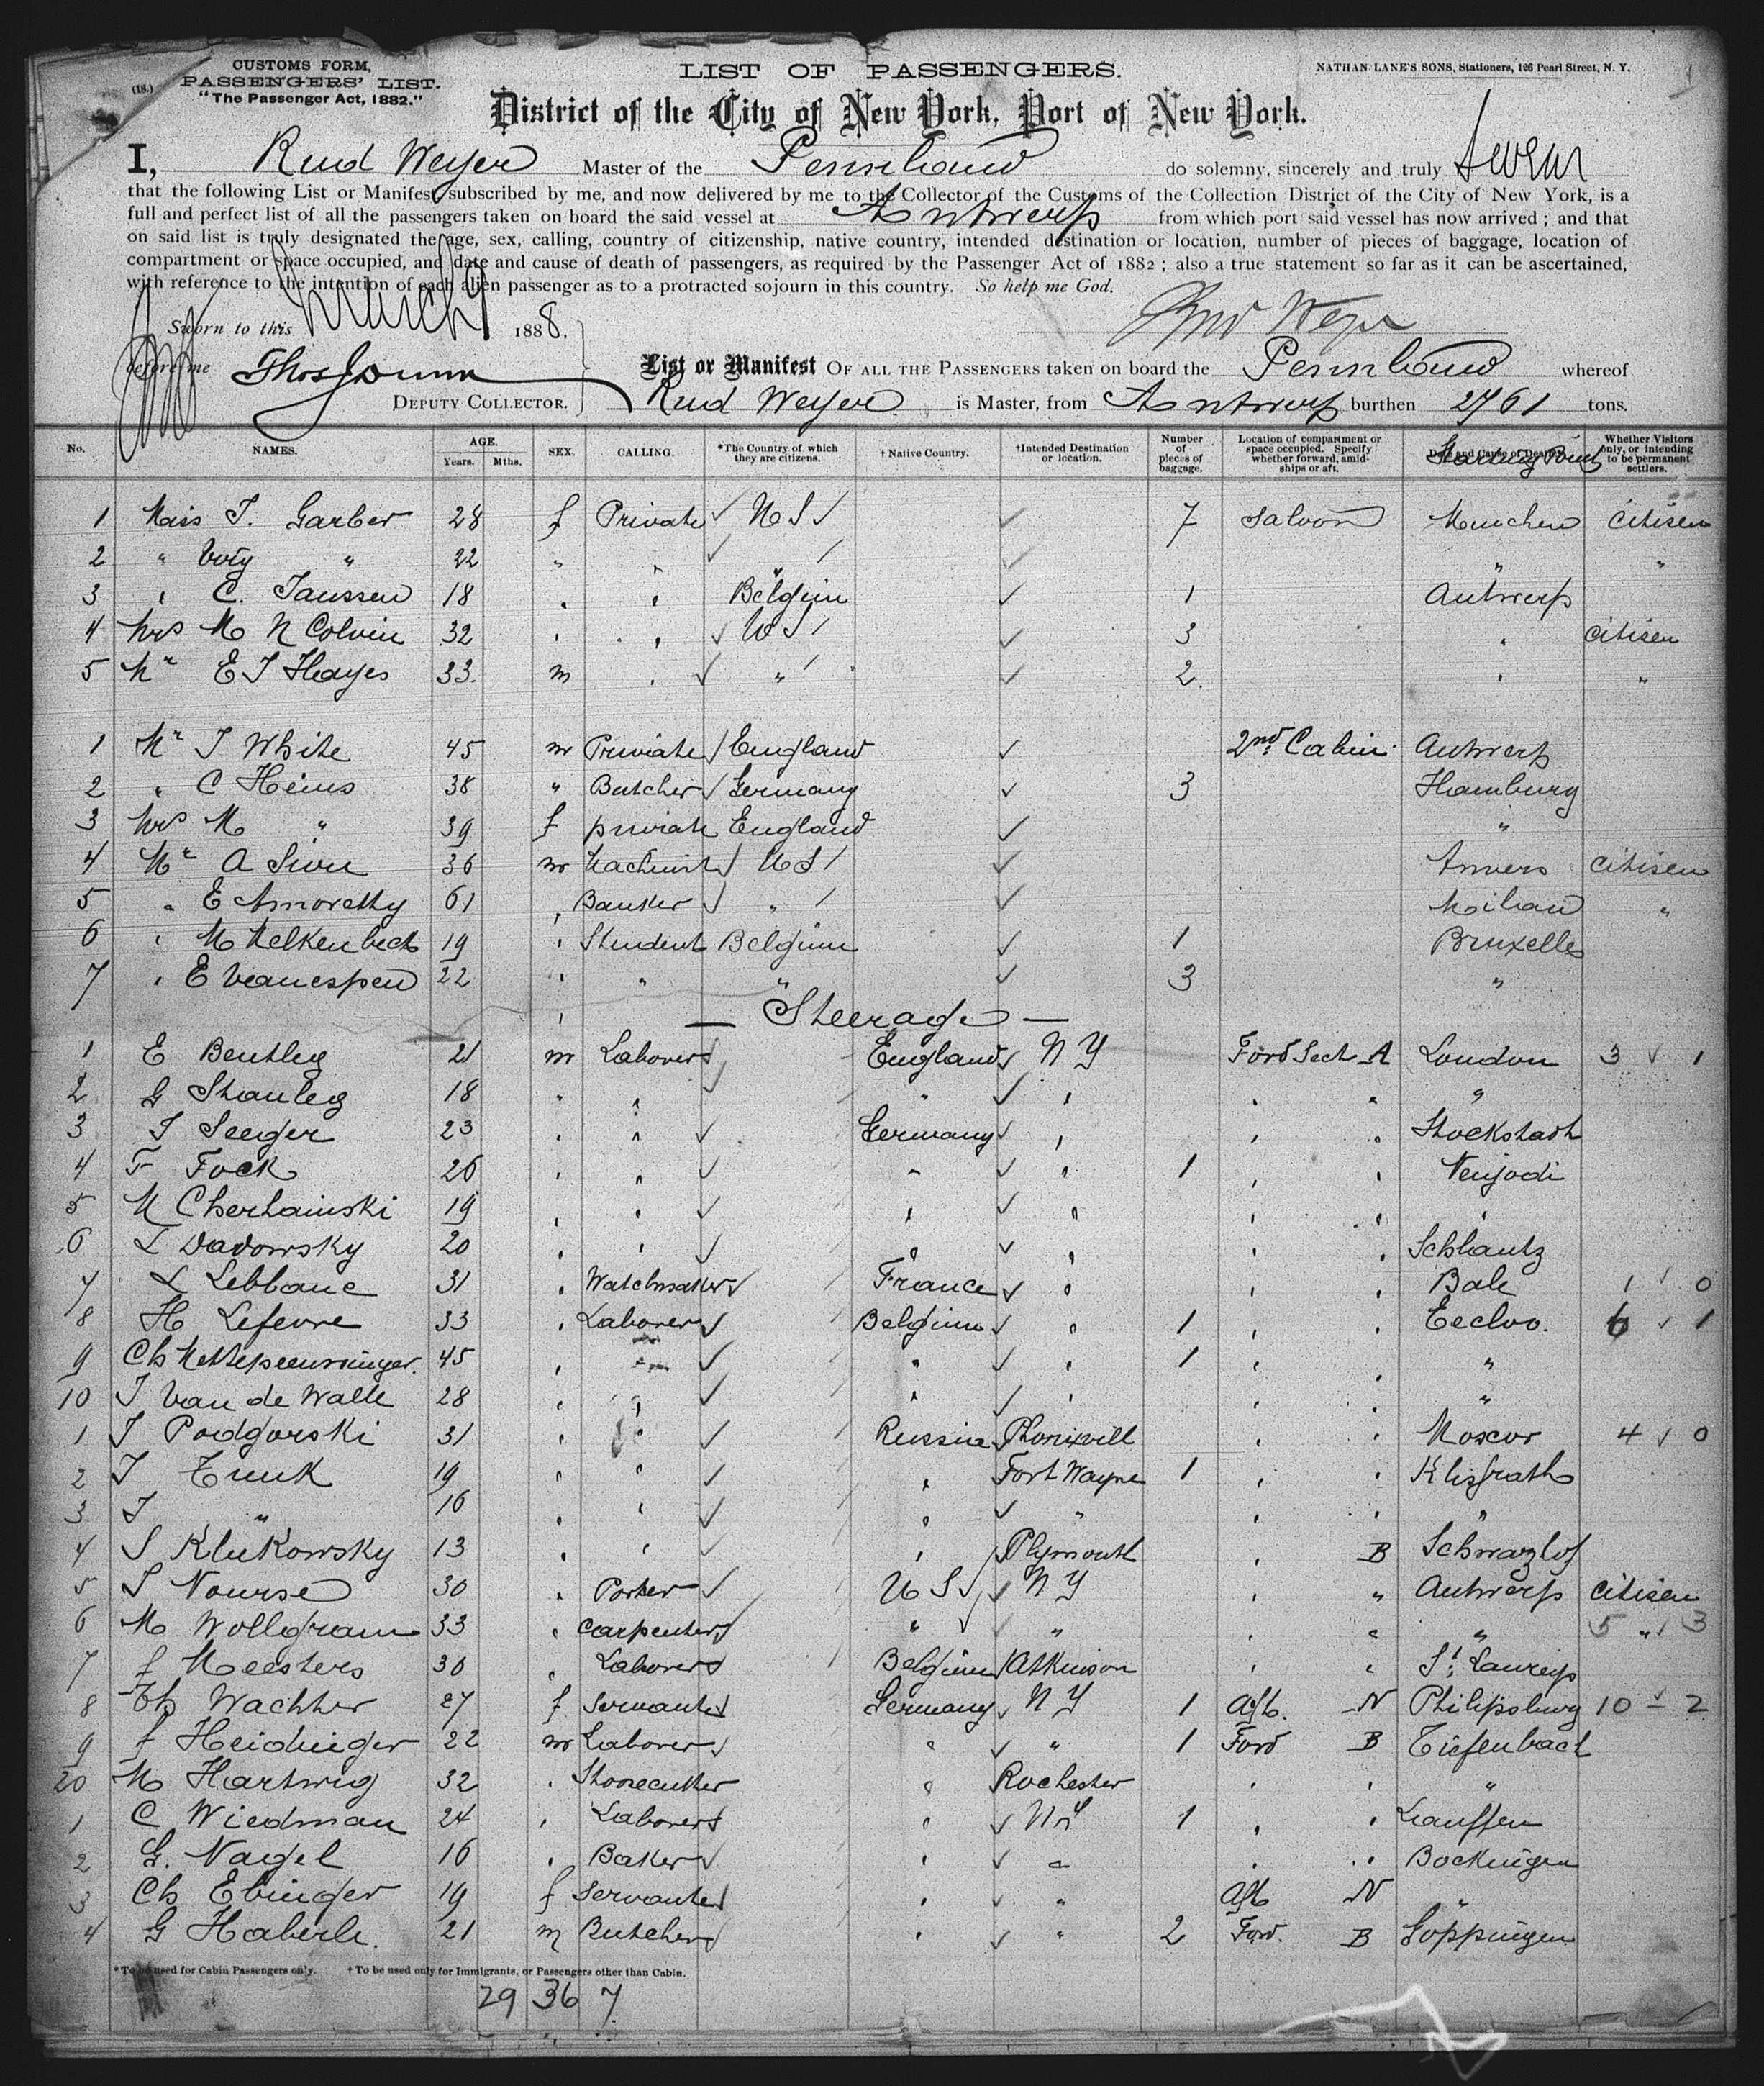 CUSTOMS FORM,
(18.) PASSENGERS' LIST.
"The Passenger Act, 1882."
LIST OF PASSENGERS.
NATHAN LANE'S SONS, Stationers, 126 Pearl Street, N. Y.
District of the City of New York, Port of New York.
I, Rud Weyer Master of the Pennland do solemny, sincerely and truly swear
that the following List or Manifest, subscribed by me, and now delivered by me to the Collector of the Customs of the Collection District of the City of New York, is a
full and perfect list of all the passengers taken on board the said vessel at Antwerp from which port said vessel has now arrived ; and that
on said list is truly designated the age, sex, calling, country of citizenship, native country, intended destination or location, number of pieces of baggage, location of
compartment or space occupied, and date and cause of death of passengers, as required by the Passenger Act of 1882 ; also a true statement so far as it can be ascertained,
with reference to the intention of each alien passenger as to a protracted sojourn in this country. So help me God.
Sworn to this March 9 1888. Rud Weyer
before me Thos J Dunn
DEPUTY COLLECTOR.
List or Manifest OF ALL THE PASSENGERS taken on board the Pennland whereof
Rud Weyer is Master, from Antwerp burthen 2761 tons.
No. NAMES. AGE. Years. Mths. SEX. CALLING. *The Country of which they are citizens. † Native Country. †Intended Destination or location. Number of pieces of baggage. Location of compartment or space occupied. Specify whether forward, amidships or aft. Date and Cause of Death. Starting Point Whether Visitors only, or intending to be permanent settlers.
1 Miss T. Garber 28 f Private ✓ U S ✓ ✓ 7 Saloon Munchen Citisen
2 " " 22 " " ✓ " ✓ " "
3 " C. Janssen 18 " " Belgium ✓ 1 Antwerp
4 Mrs M N Colvin 32 " " ✓ U S ✓ 3 " Citisen
5 Mr E J Hayes 33. m " ✓ " ✓ 2. " "
1 Mr J White 45 m Private ✓ England ✓ 2nd Cabin Antwerp
2 " C Heins 38 " Butcher ✓ Germany ✓ 3 Hamburg
3 Mrs M " 39 f private England ✓ "
4 Mr A Sivu 36 m Machinist ✓ U S ✓ Anvers Citisen
5 " E Amoretty 61 " Banker ✓ " ✓ Moiland "
6 " M Melkenbeck 19 " Student Belgium ✓ 1 Bruxelles
7 " E Vanespen 22 " " " ✓ 3 "
— Steerage —
1 E Bentley 21 m Laborer ✓ England ✓ N Y Ford Sect A London 3 ✓ 1
2 G Stanley 18 " " ✓ " ✓ " " " "
3 J Seeger 23 " " ✓ Germany ✓ " " " Stockstadt
4 F Fock 26 " " ✓ " ✓ " 1 " " Neujodi
5 M Cherhainski 19 " " ✓ " ✓ " " " "
6 L Dadowsky 20 " " ✓ " ✓ " " " Schlantz
7 L Lebbane 31 " Watchmaker ✓ France ✓ " " " Bale 1 ✓ 0
8 H Lefevre 33 " Laborer ✓ Belgium ✓ " 1 " " Eecloo. 6 ✓ 1
9 Ch 45 " " ✓ " ✓ " 1 " " "
10 J Van de Walle 28 " " ✓ " ✓ " " " "
1 J Podgorski 31 " " ✓ Russia Phonixvill " " Moscov 4 ✓ 0
2 J Tunk 19 " " ✓ " Fort Wayne 1 " "
3 J " 16 " " ✓ " ✓ " " " "
4 S Klukowsky 13 " " ✓ " Plymouth " B Schwarzhof
5 S Nourse 30 " Porter ✓ U S ✓ N Y " " Antwerp Citisen
6 M Wollgram 33 " Carpenter ✓ " ✓ " " " " 5 " 3
7 f Meesters 36 " Laborer ✓ Belgium Atkinson " " St Laureys
8 Th Wachter 27 f Servante Germany ✓ N Y 1 Aft. N Philipsburg 10 – 2
9 f Heidinger 22 m Laborer ✓ " ✓ " 1 Ford B Tiefenbach
20 M Hartwig 32 " Stonecutter " Rochester " " "
1 C Wiedman 24 " Laborer ✓ " ✓ N Y 1 " " Lauffen
2 G. Nagel 16 " Baker ✓ " ✓ " " " Bockingen
3 Ch Ebinger 19 f Servante " ✓ " Aft N "
4 G Haberle. 21 m Butcher ✓ " ✓ " 2 Ford. B Göppingen
*To be used for Cabin Passengers only. †To be used only for Immigrants, or Passengers other than Cabin.
29 36 7